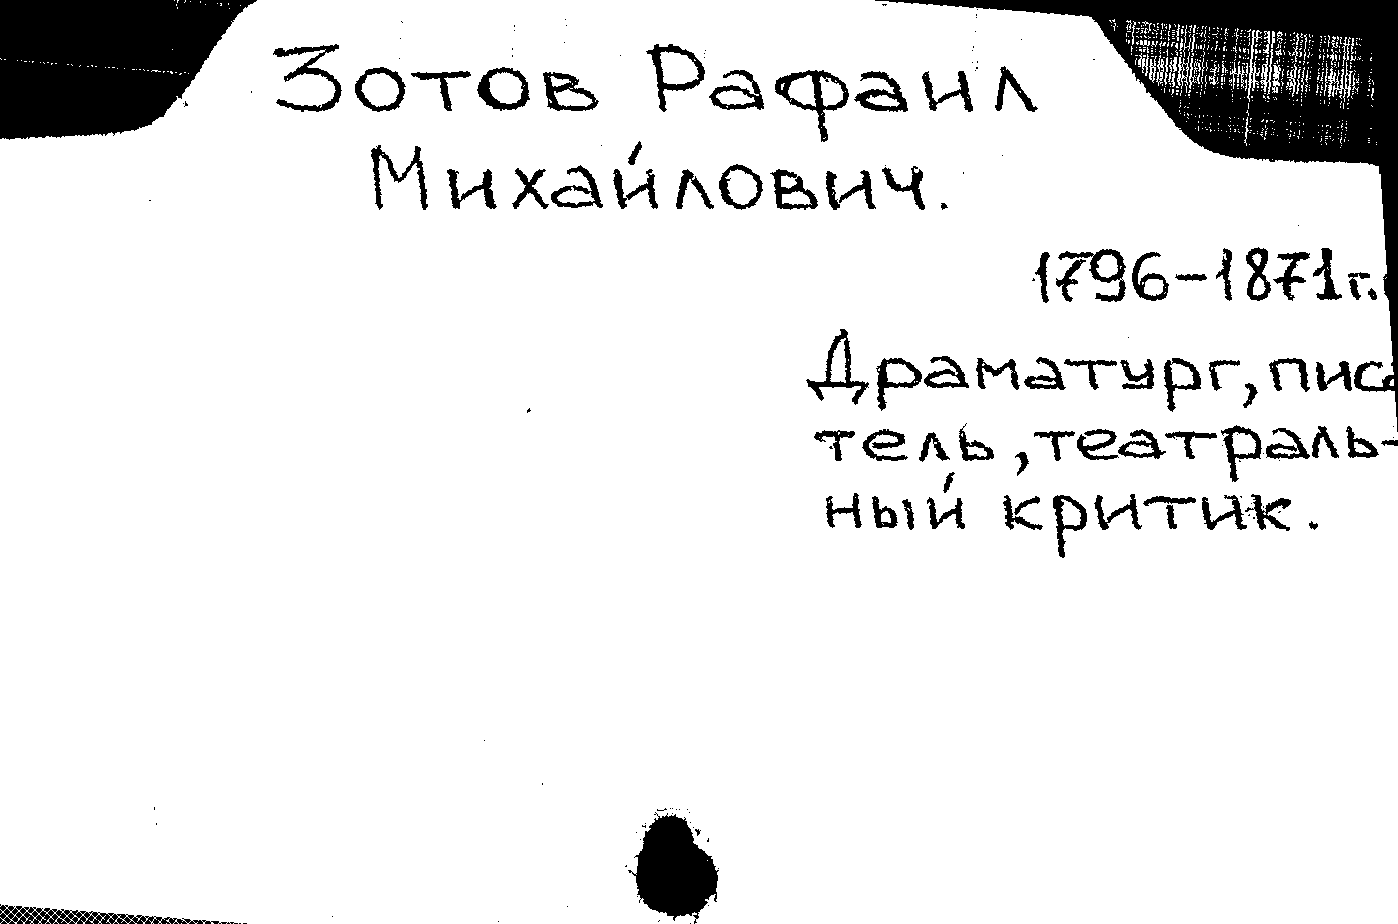 Зотов Рафаил
Михайлович.
1796-1871г.
Драматург, писа
тель, театраль-
ный критик.